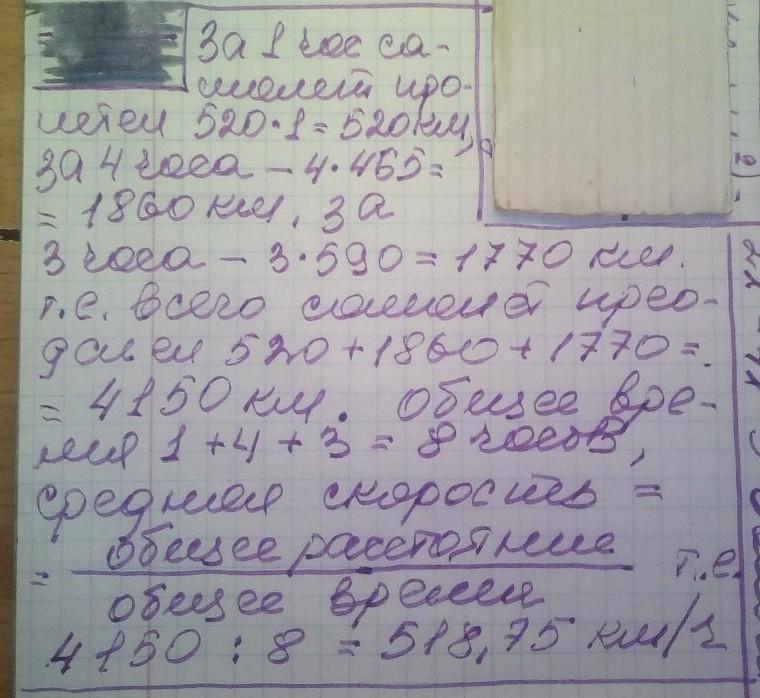 За 1 час са-
молет про-
летел 520·1=520км,
за 4 часа – 4·465=
= 1860 км, за
3 часа – 3·590=1770 км.
т.е. всего самолет прео-
далел 520+1860+1770=
= 4150 км. общее вре-
мя 1+4+3=8 часов,
средняя скорость =
= общее расстояние
общее время
т.е.
4150 : 8 = 518,75 км/ч